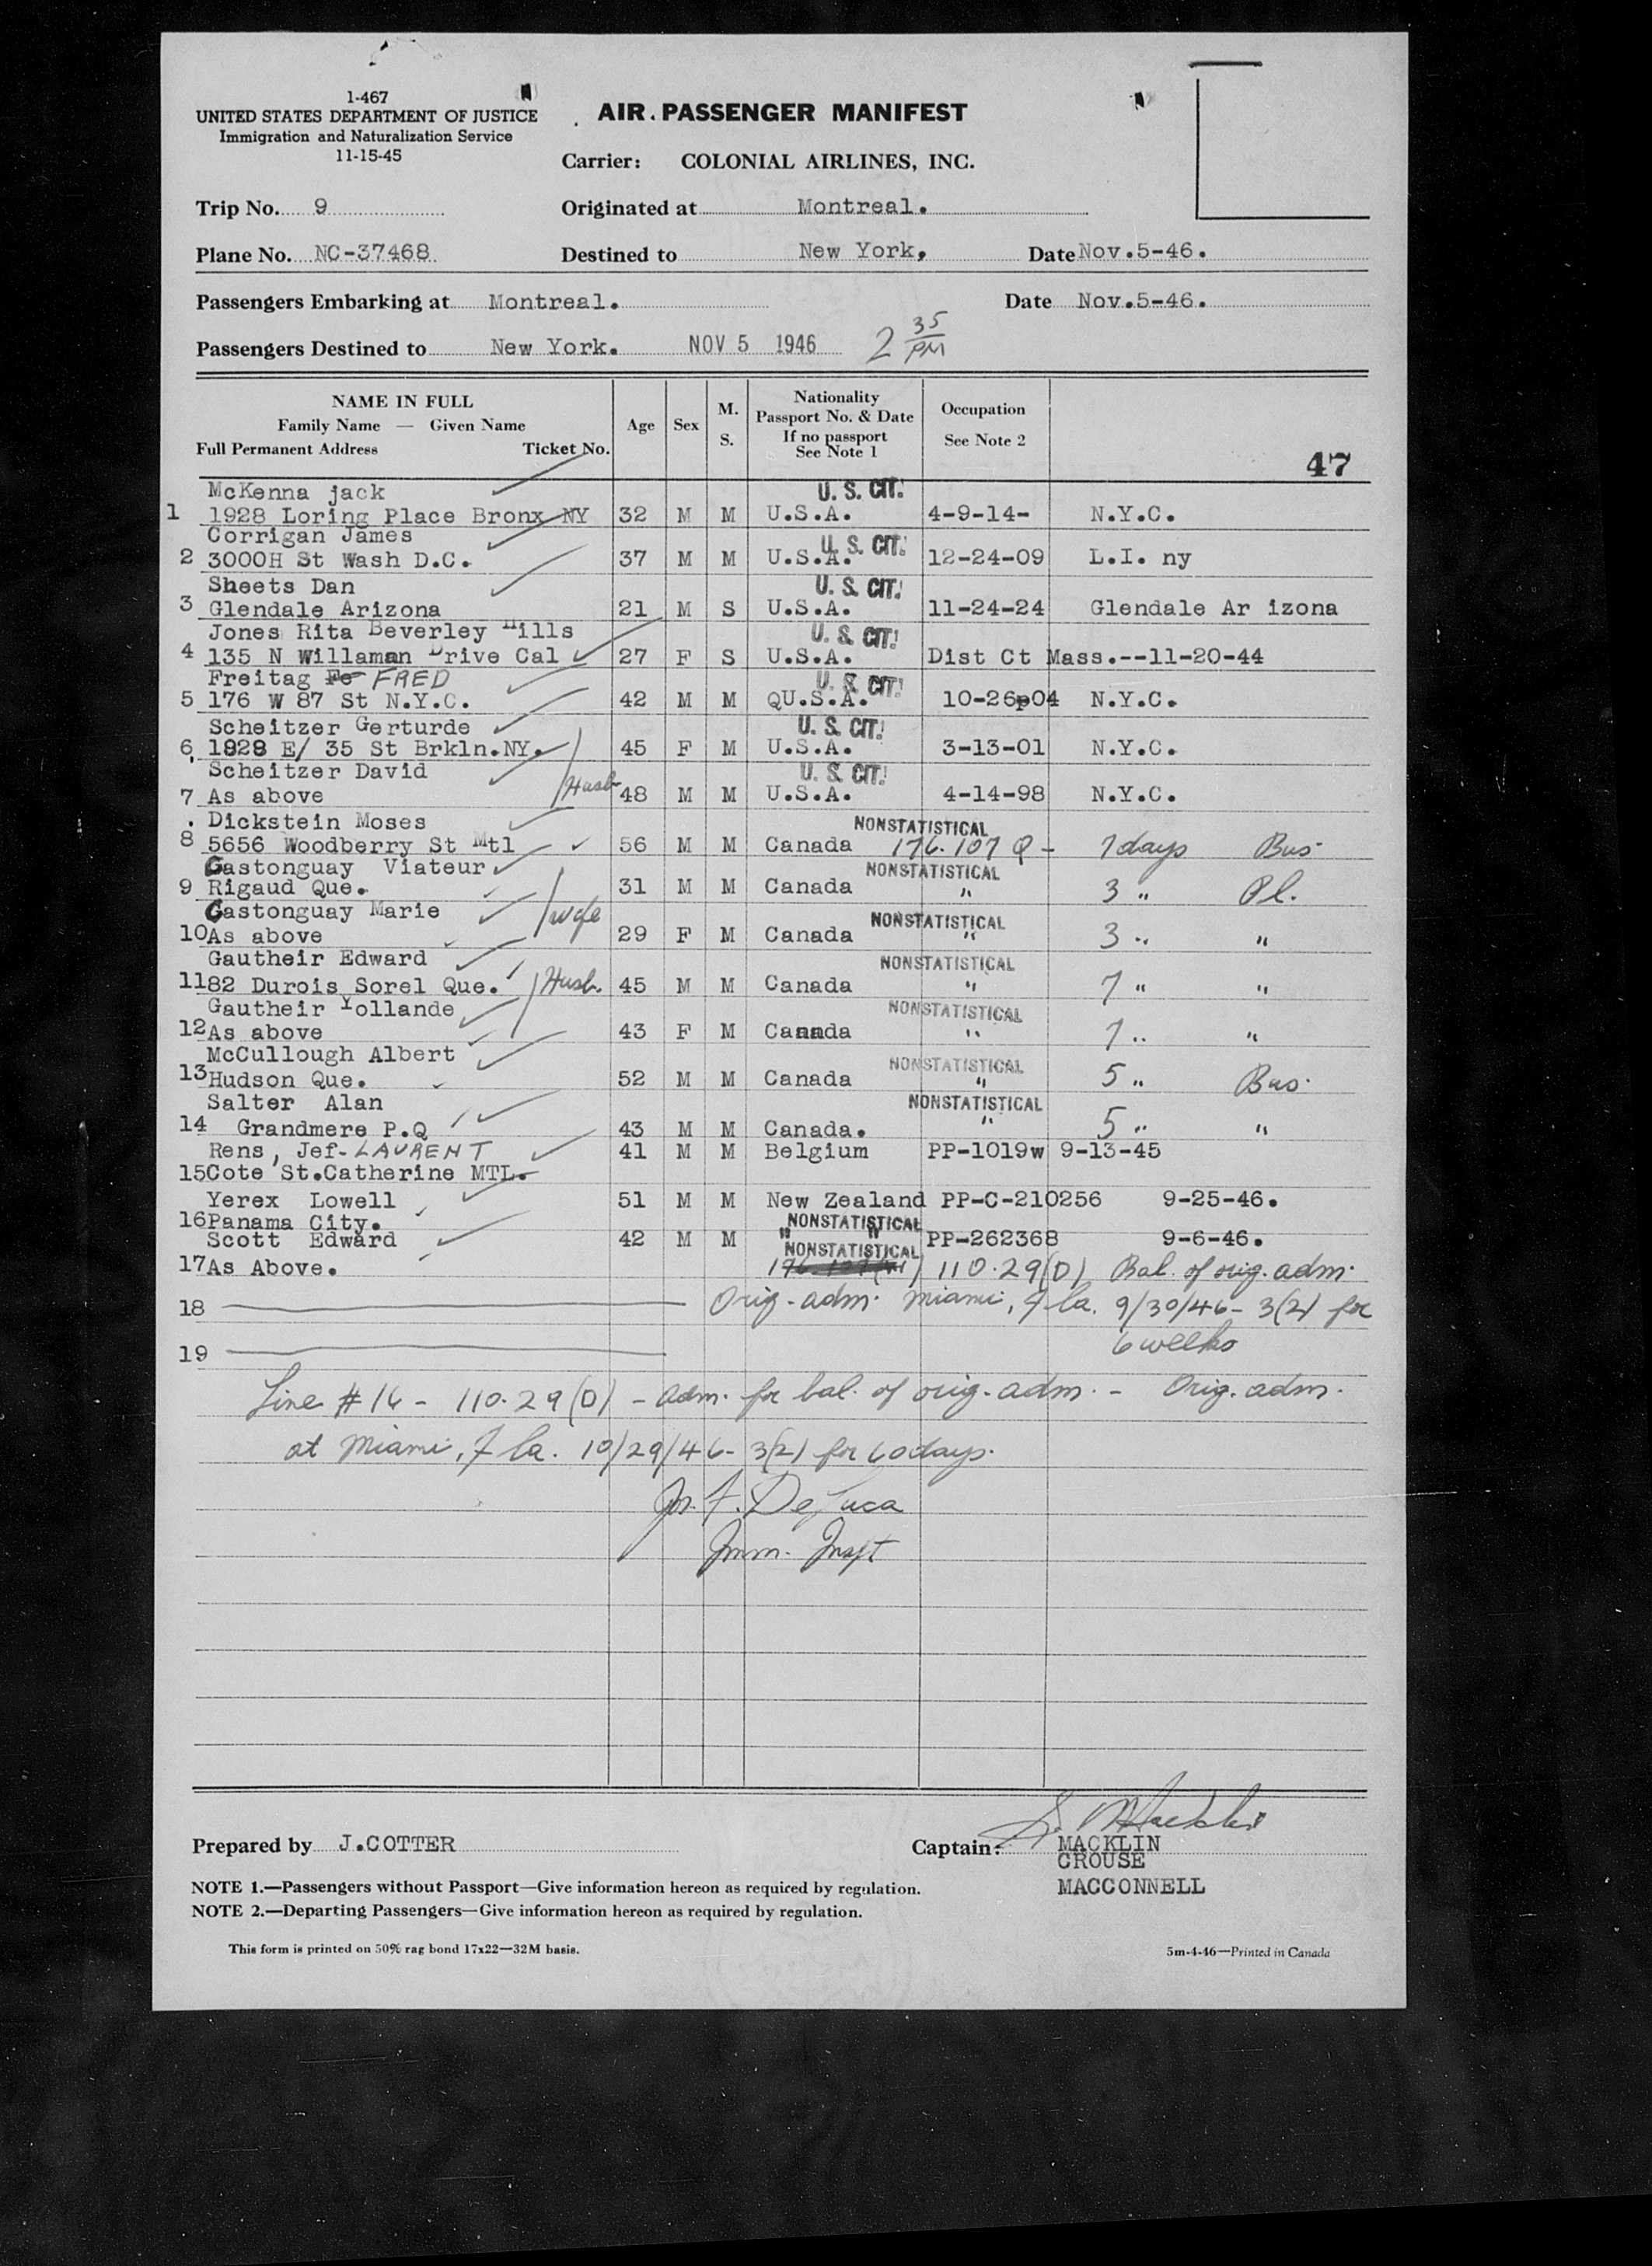 1-467
UNITED STATES DEPARTMENT OF JUSTICE
Immigration and Naturalization Service
11-15-45
AIR PASSENGER MANIFEST
Carrier: COLONIAL AIRLINES, INC.
Trip No. 9 Originated at Montreal.
Plane No. NC-37468 Destined to New York, Date Nov.5-46.
Passengers Embarking at Montreal. Date Nov.5-46.
Passengers Destined to New York. NOV 5 1946 2 35 PM
NAME IN FULL
Family Name — Given Name
Full Permanent Address Ticket No.
Age Sex M. S.
Nationality
Passport No. & Date
If no passport
See Note 1
Occupation
See Note 2
47
McKenna jack U. S. CIT.
1 1928 Loring Place Bronx NY 32 M M U.S.A. 4-9-14- N.Y.C.
Corrigan James U. S. CIT.
2 3000H St Wash D.C. 37 M M U.S.A. 12-24-09 L.I. ny
Sheets Dan U. S. CIT.
3 Glendale Arizona 21 M S U.S.A. 11-24-24 Glendale Ar izona
Jones Rita Beverley Hills U. S. CIT.
4 135 N Willaman Drive Cal 27 F S U.S.A. Dist Ct Mass.--11-20-44
Freitag Fe FRED U. S. CIT.
5 176 W 87 St N.Y.C. 42 M M QU.S.A. 10-26p04 N.Y.C.
Scheitzer Gerturde U. S. CIT.
6 1828 E/ 35 St Brkln.NY. 45 F M U.S.A. 3-13-01 N.Y.C.
Scheitzer David U. S. CIT.
7 As above Husb 48 M M U.S.A. 4-14-98 N.Y.C.
Dickstein Moses NONSTATISTICAL
8 5656 Woodberry St Mtl 56 M M Canada 176.107 Q - 7 days Bus.
Gastonguay Viateur NONSTATISTICAL
9 Rigaud Que. 31 M M Canada " 3 " Pl.
Gastonguay Marie wife NONSTATISTICAL
10 As above 29 F M Canada " 3 " "
Gautheir Edward NONSTATISTICAL
11 82 Durois Sorel Que. Husb. 45 M M Canada " 7 " "
Gautheir Yollande NONSTATISTICAL
12 As above 43 F M Canada " 7 " "
McCullough Albert NONSTATISTICAL
13 Hudson Que. 52 M M Canada " 5 " Bus.
Salter Alan NONSTATISTICAL
14 Grandmere P.Q 43 M M Canada. " 5 " "
Rens, Jef-LAURENT 41 M M Belgium PP-1019w 9-13-45
15 Cote St.Catherine MTL.
Yerex Lowell 51 M M New Zealand PP-C-210256 9-25-46.
16 Panama City. NONSTATISTICAL
Scott Edward 42 M M " " PP-262368 9-6-46.
NONSTATISTICAL
17 As Above. 110.29(D) Bal. of orig. adm.
18 Orig. adm. Miami, Fla. 9/30/46 - 3(2) for
19 6 weeks
Line #16 - 110.29(D) - adm. for bal. of orig. adm. - Orig. adm.
at Miami, Fla. 10/29/46 - 3(2) for 60 days.
Jos. F. DeLuca
Imm. Inspt
Prepared by J.COTTER Captain: MACKLIN
CROUSE
MACCONNELL
NOTE 1.—Passengers without Passport—Give information hereon as required by regulation.
NOTE 2.—Departing Passengers—Give information hereon as required by regulation.
This form is printed on 50% rag bond 17x22—32M basis. 5m-4-46—Printed in Canada